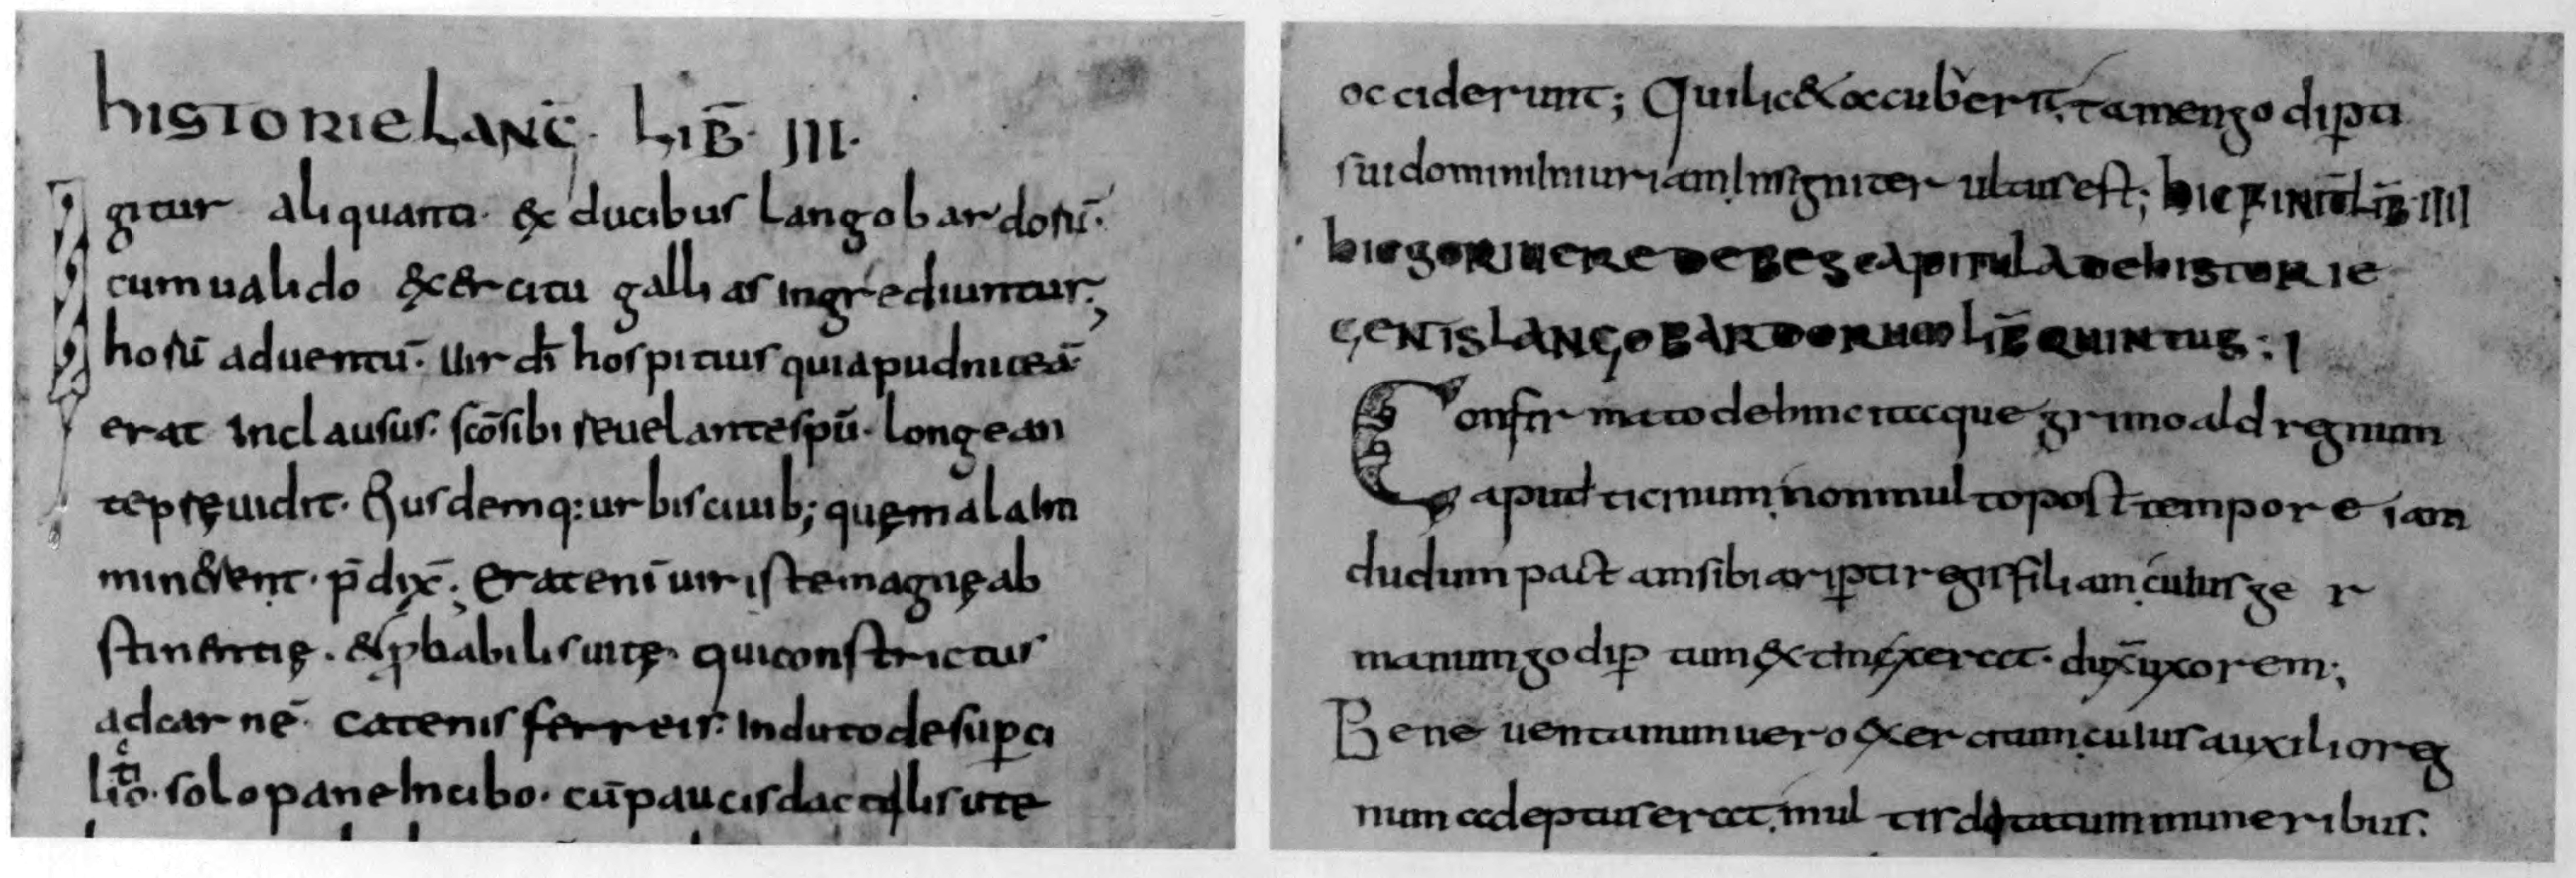 hISTORIE LANG̅. LIB̅. III.
gitur aliquanti. ex ducibus langobardorū.
cum ualido exercitu gallias ingrediuntur;
horū aduentū. uir dī hospitius qui apud niceā
erat inclausus. scō sibi reuelante spū. longe an
te pręuidit. Eiusdemq: urbis ciuib; quę mala im
minerent. p̄dix̄; Erat eni̅ uir iste magnę ab
stinentię. & ꝓbabilis uitę. qui constrictus
ad carnē. catenis ferreis. induto desuꝑ ci
licio. solo pane in cibo. cū paucis dactalis ute
occiderunt; Qui licet occubuerit, tamen godiꝑti
sui domini iniuriam insigniter ultus est; hIC FINIT̄ LIB̄ IIII
hIC gORIHERE DEBES CAPITULA DE hISTORIE
GENTIS LANGOBARDORUM LIB̄ QUINTUS: I
Confirmato dehinc itaque grimoald regnum
apud ticinum non multo post tempore iam
dudum pactam sibi ariꝑti regis filiam, cuius ger
manum godiꝑtum extinxerat. dux̄ uxorem;
Beneuentanum uero exercitum, cuius auxilio reg
num adeptus erat, multis ditatum muneribus.